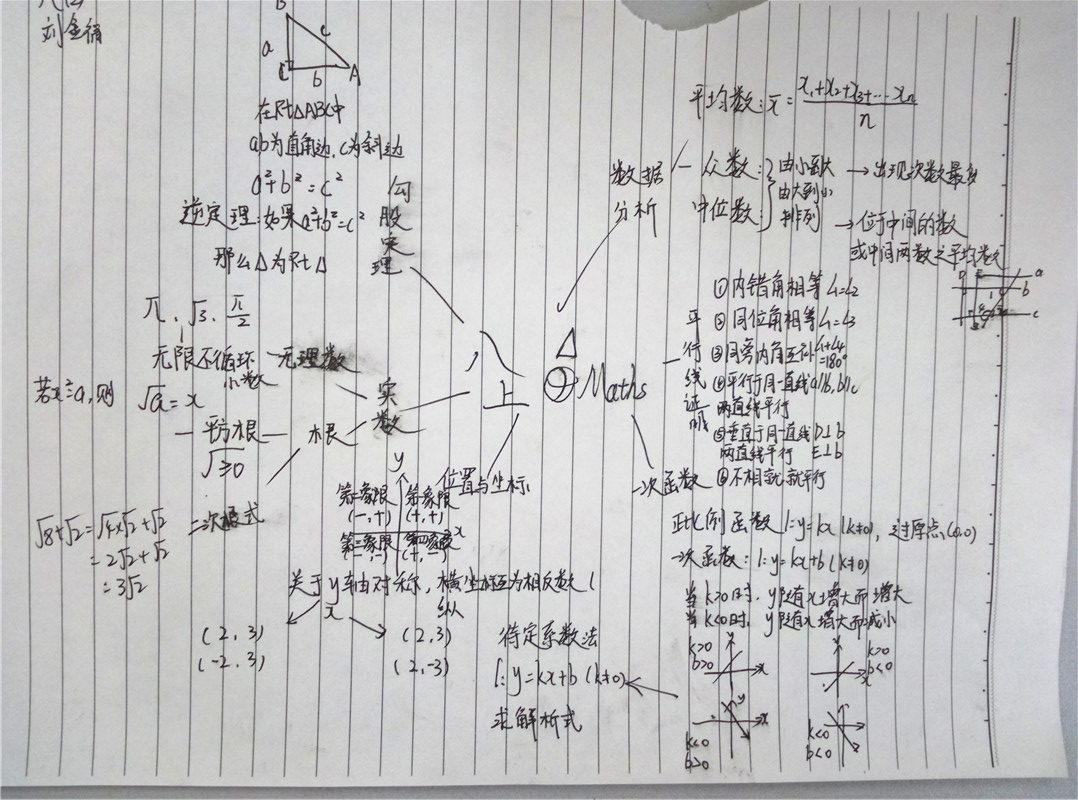 刘金
B
a
c
C
b
A
在Rt△ABC中
ab为直角边,c为斜边
a²+b²=c²
逆定理:如果a²+b²=c²
那么△为Rt△
勾
股
定
理
π、√3、π/2
无限不循环
小数
无理数
若x²=a,则
√a=x
平方根
√≥0
根
实
数
√8+√2=√4×√2+√2
=2√2+√2
=3√2
二次根式
八
上
Maths
位置与坐标
y
x
第二象限
(-,+)
第一象限
(+,+)
第三象限
(-,-)
第四象限
(+,-)
关于y轴对称,横坐标互为相反数
x
纵
(2,3)
(-2,3)
(2,3)
(2,-3)
数据
分析
平均数:x̄=(x₁+x₂+x₃+…xₙ)/n
众数:
中位数:
由小到大
由大到小
排列
→出现次数最多
→位于中间的数
或中间两数之平均数
平
行
线
证
明
①内错角相等∠1=∠2
②同位角相等∠1=∠3
③同旁内角互补∠1+∠4
=180°
④平行于同一直线a∥b,b∥c
两直线平行
⑤垂直于同一直线D⊥b
两直线平行 E⊥b
⑥不相交就平行
a
b
c
一次函数
正比例函数 l:y=kx(k≠0),过原点(0,0)
一次函数:l:y=kx+b(k≠0)
当k>0时,y随着x增大而增大
当k<0时,y随着x增大而减小
k>0
b>0
y
x
k>0
b<0
y
x
k<0
b>0
y
x
k<0
b<0
待定系数法
l:y=kx+b(k≠0)
求解析式